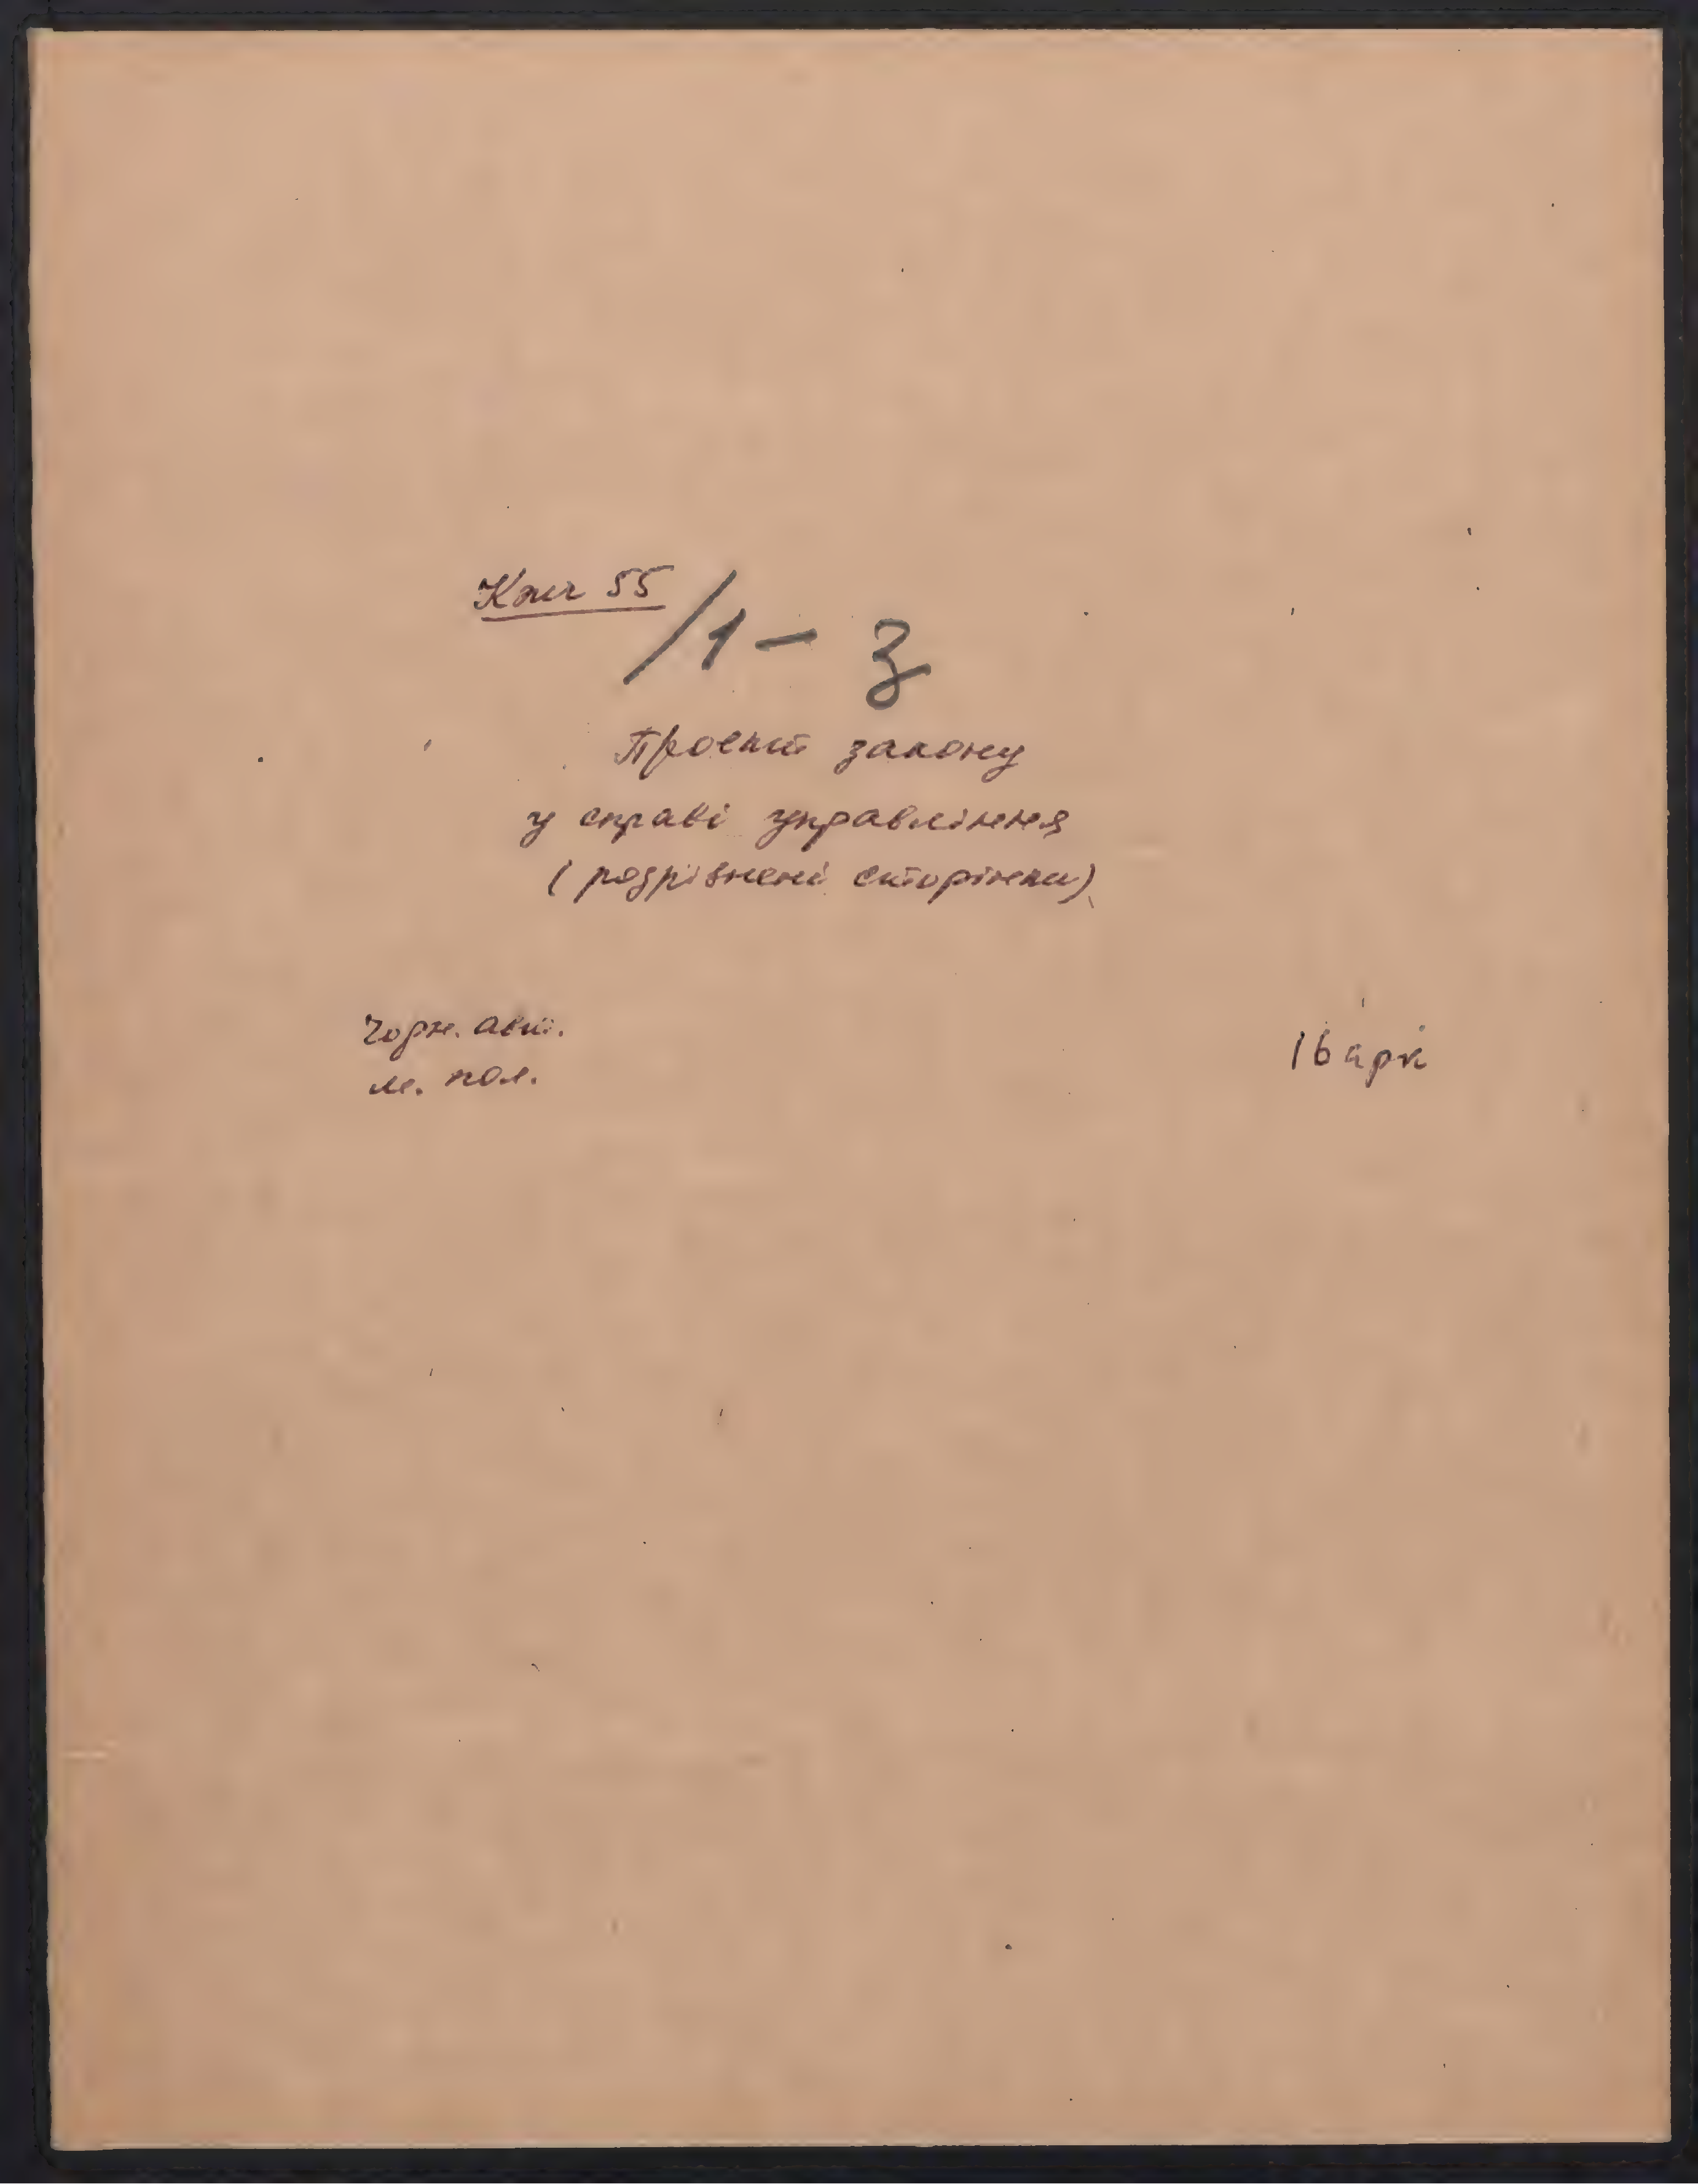 Книг 55
/1 - 3
Проект закону
у справі управління
(розрізнені сторінки)
Чорн. авт.
м. пол.
16 арк